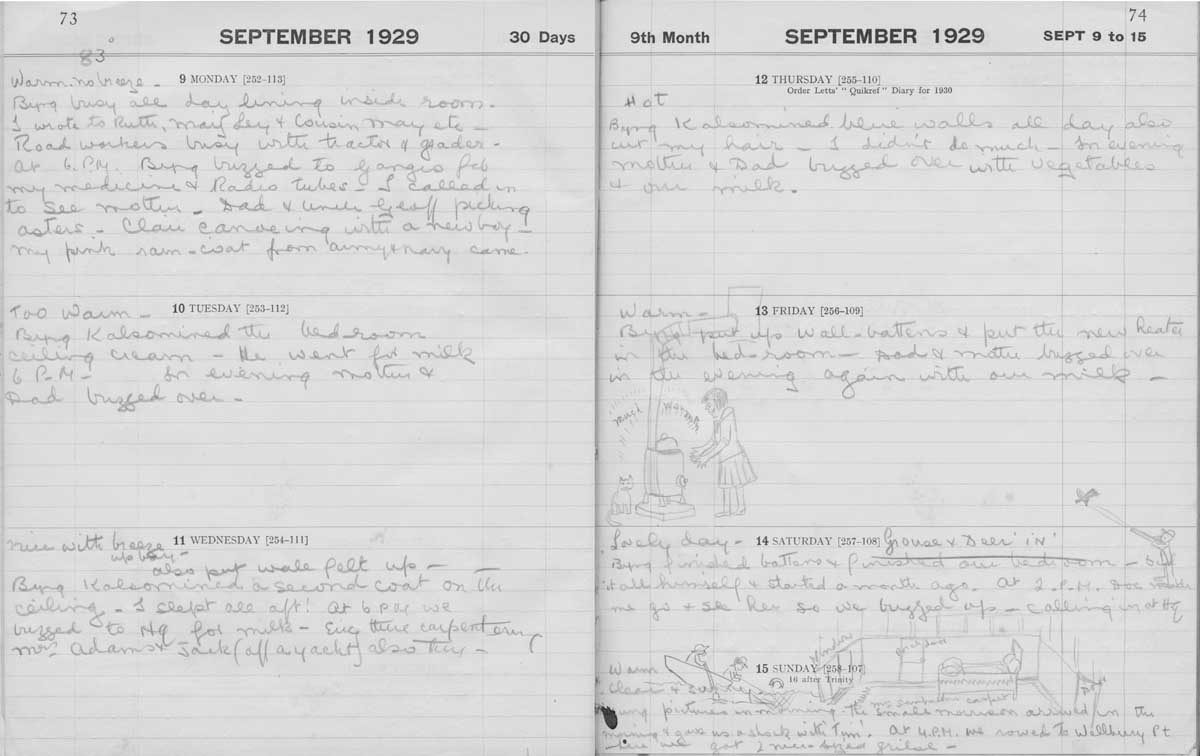 73
SEPTEMBER 1929 30 Days
83
Warm. no breeze - 9 MONDAY [252-113]
Byng busy all day lining inside room.
I wrote to Ruth, Mary Ley & Cousin May etc -
Road workers busy with tractor & grader -
At 6. P.M. Byng buzzed to Ganges for
my medicine & Radio tubes - I called in
to see mother - Dad & Uncle Geoff picking
asters - Clair canoeing with a new boy -
my pink rain-coat from army & navy came.
Too Warm - 10 TUESDAY [253-112]
Byng Kalsomined the bed-room
ceiling cream - He went for milk
6 P.M - In evening mother &
Dad buzzed over -
nice with breeze 11 WEDNESDAY [254-111]
up bay -
also put wall felt up -
Byng Kalsomined a second coat on the
ceiling - I slept all aft! At 6 P.M we
buzzed to Hq for milk - Eug there carpentering
Mrs Adams & Jack (off a yacht) also there -
74
9th Month SEPTEMBER 1929 SEPT 9 to 15
12 THURSDAY [255-110]
Order Letts' "Quikref" Diary for 1930
Hot
Byng Kalsomined blue walls all day also
cut my hair - I didn't do much - In evening
mother & Dad buzzed over with vegetables
& our milk.
Warm - 13 FRIDAY [256-109]
Byng put up wall-battens & put the new heater
in the bed-room - Dad & mother buzzed over
in the evening again with our milk -
much warmth
Lovely day - 14 SATURDAY [257-108] Grouse & Deer 'IN'
Byng finished battens & finished our bedroom - Did
it all himself & started a month ago. At 2. P.M. Doc
me go & see her so we buzzed up - calling in at Hq
window
15 SUNDAY [258-107]
16 after Trinity
Warm
Clear & sunny
carpet
pictures in morning The small morrison arrived in the
morning & gave us a shock with 'Tym'. At 4.P.M. we rowed to Wellbury Pt
we got 2 nice sized grilse -